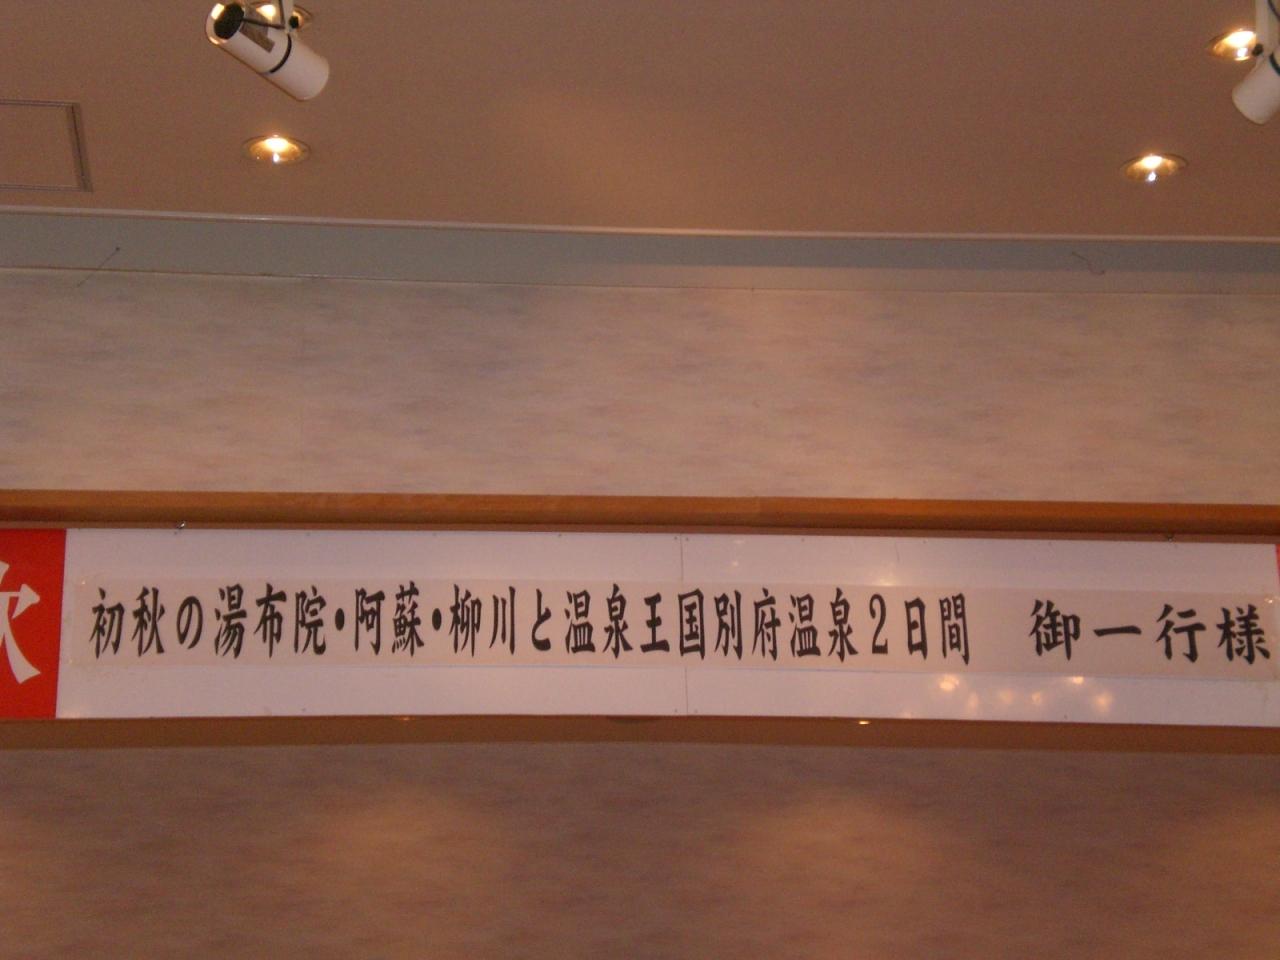 歓 初秋の湯布院・阿蘇・柳川と温泉王国別府温泉2日間 御一行様